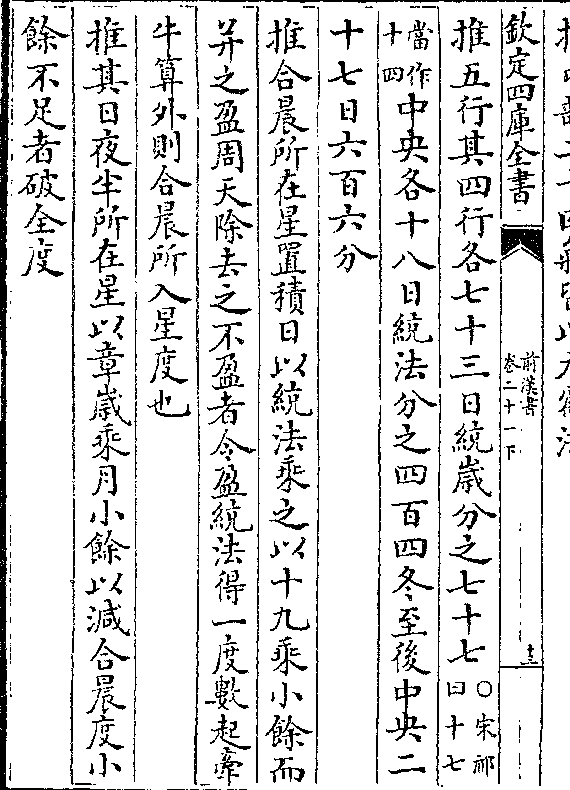 欽定四庫全書
前漢書
卷二十一下
十三
推五行其四行各七十三日統歲分之七十七○宋祁曰十七
當作十四中央各十八日統法分之四百四冬至後中央二
十七日六百六分
推合晨所在星置積日以統法乘之以十九乘小餘而
并之盈周天除去之不盈者令盈統法得一度數起牽
牛算外則合晨所入星度也
推其日夜半所在星以章歲乘月小餘以減合晨度小
餘不足者破全度